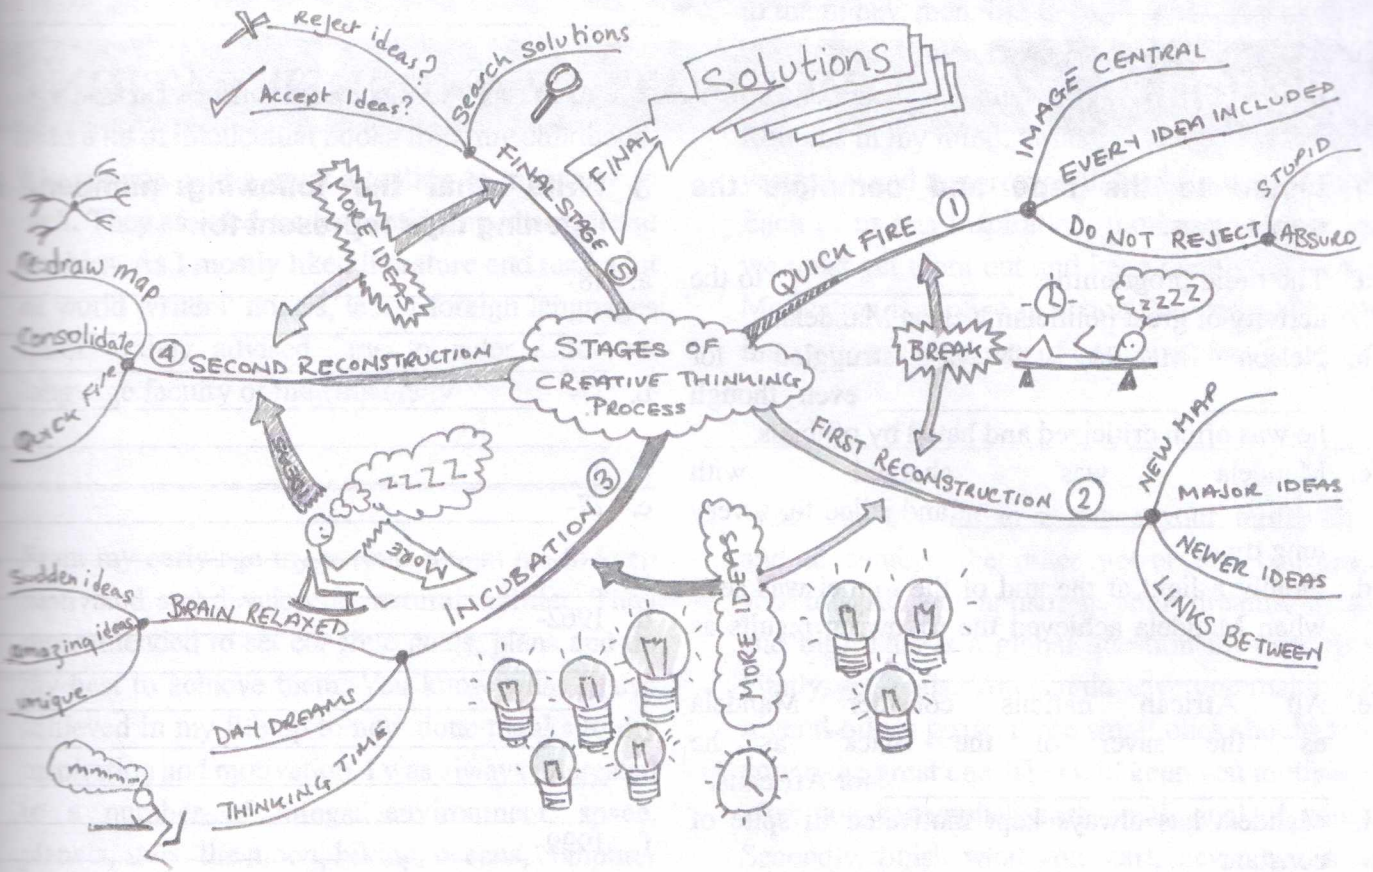 STAGES OF
CREATIVE THINKING
PROCESS
QUICK FIRE
1
IMAGE CENTRAL
EVERY IDEA INCLUDED
DO NOT REJECT
STUPID
ABSURD
BREAK
zzzzz
FIRST RECONSTRUCTION
2
NEW MAP
MAJOR IDEAS
NEWER IDEAS
LINKS BETWEEN
MORE IDEAS
3
INCUBATION
BRAIN RELAXED
sudden ideas
amazing ideas
unique
DAY DREAMS
THINKING TIME
MORE
zzzz
4
SECOND RECONSTRUCTION
Redraw map
Consolidate
Quick Fire
MORE IDEAS
5
FINAL STAGE
Search solutions
Reject ideas?
Accept Ideas?
FINAL
Solutions